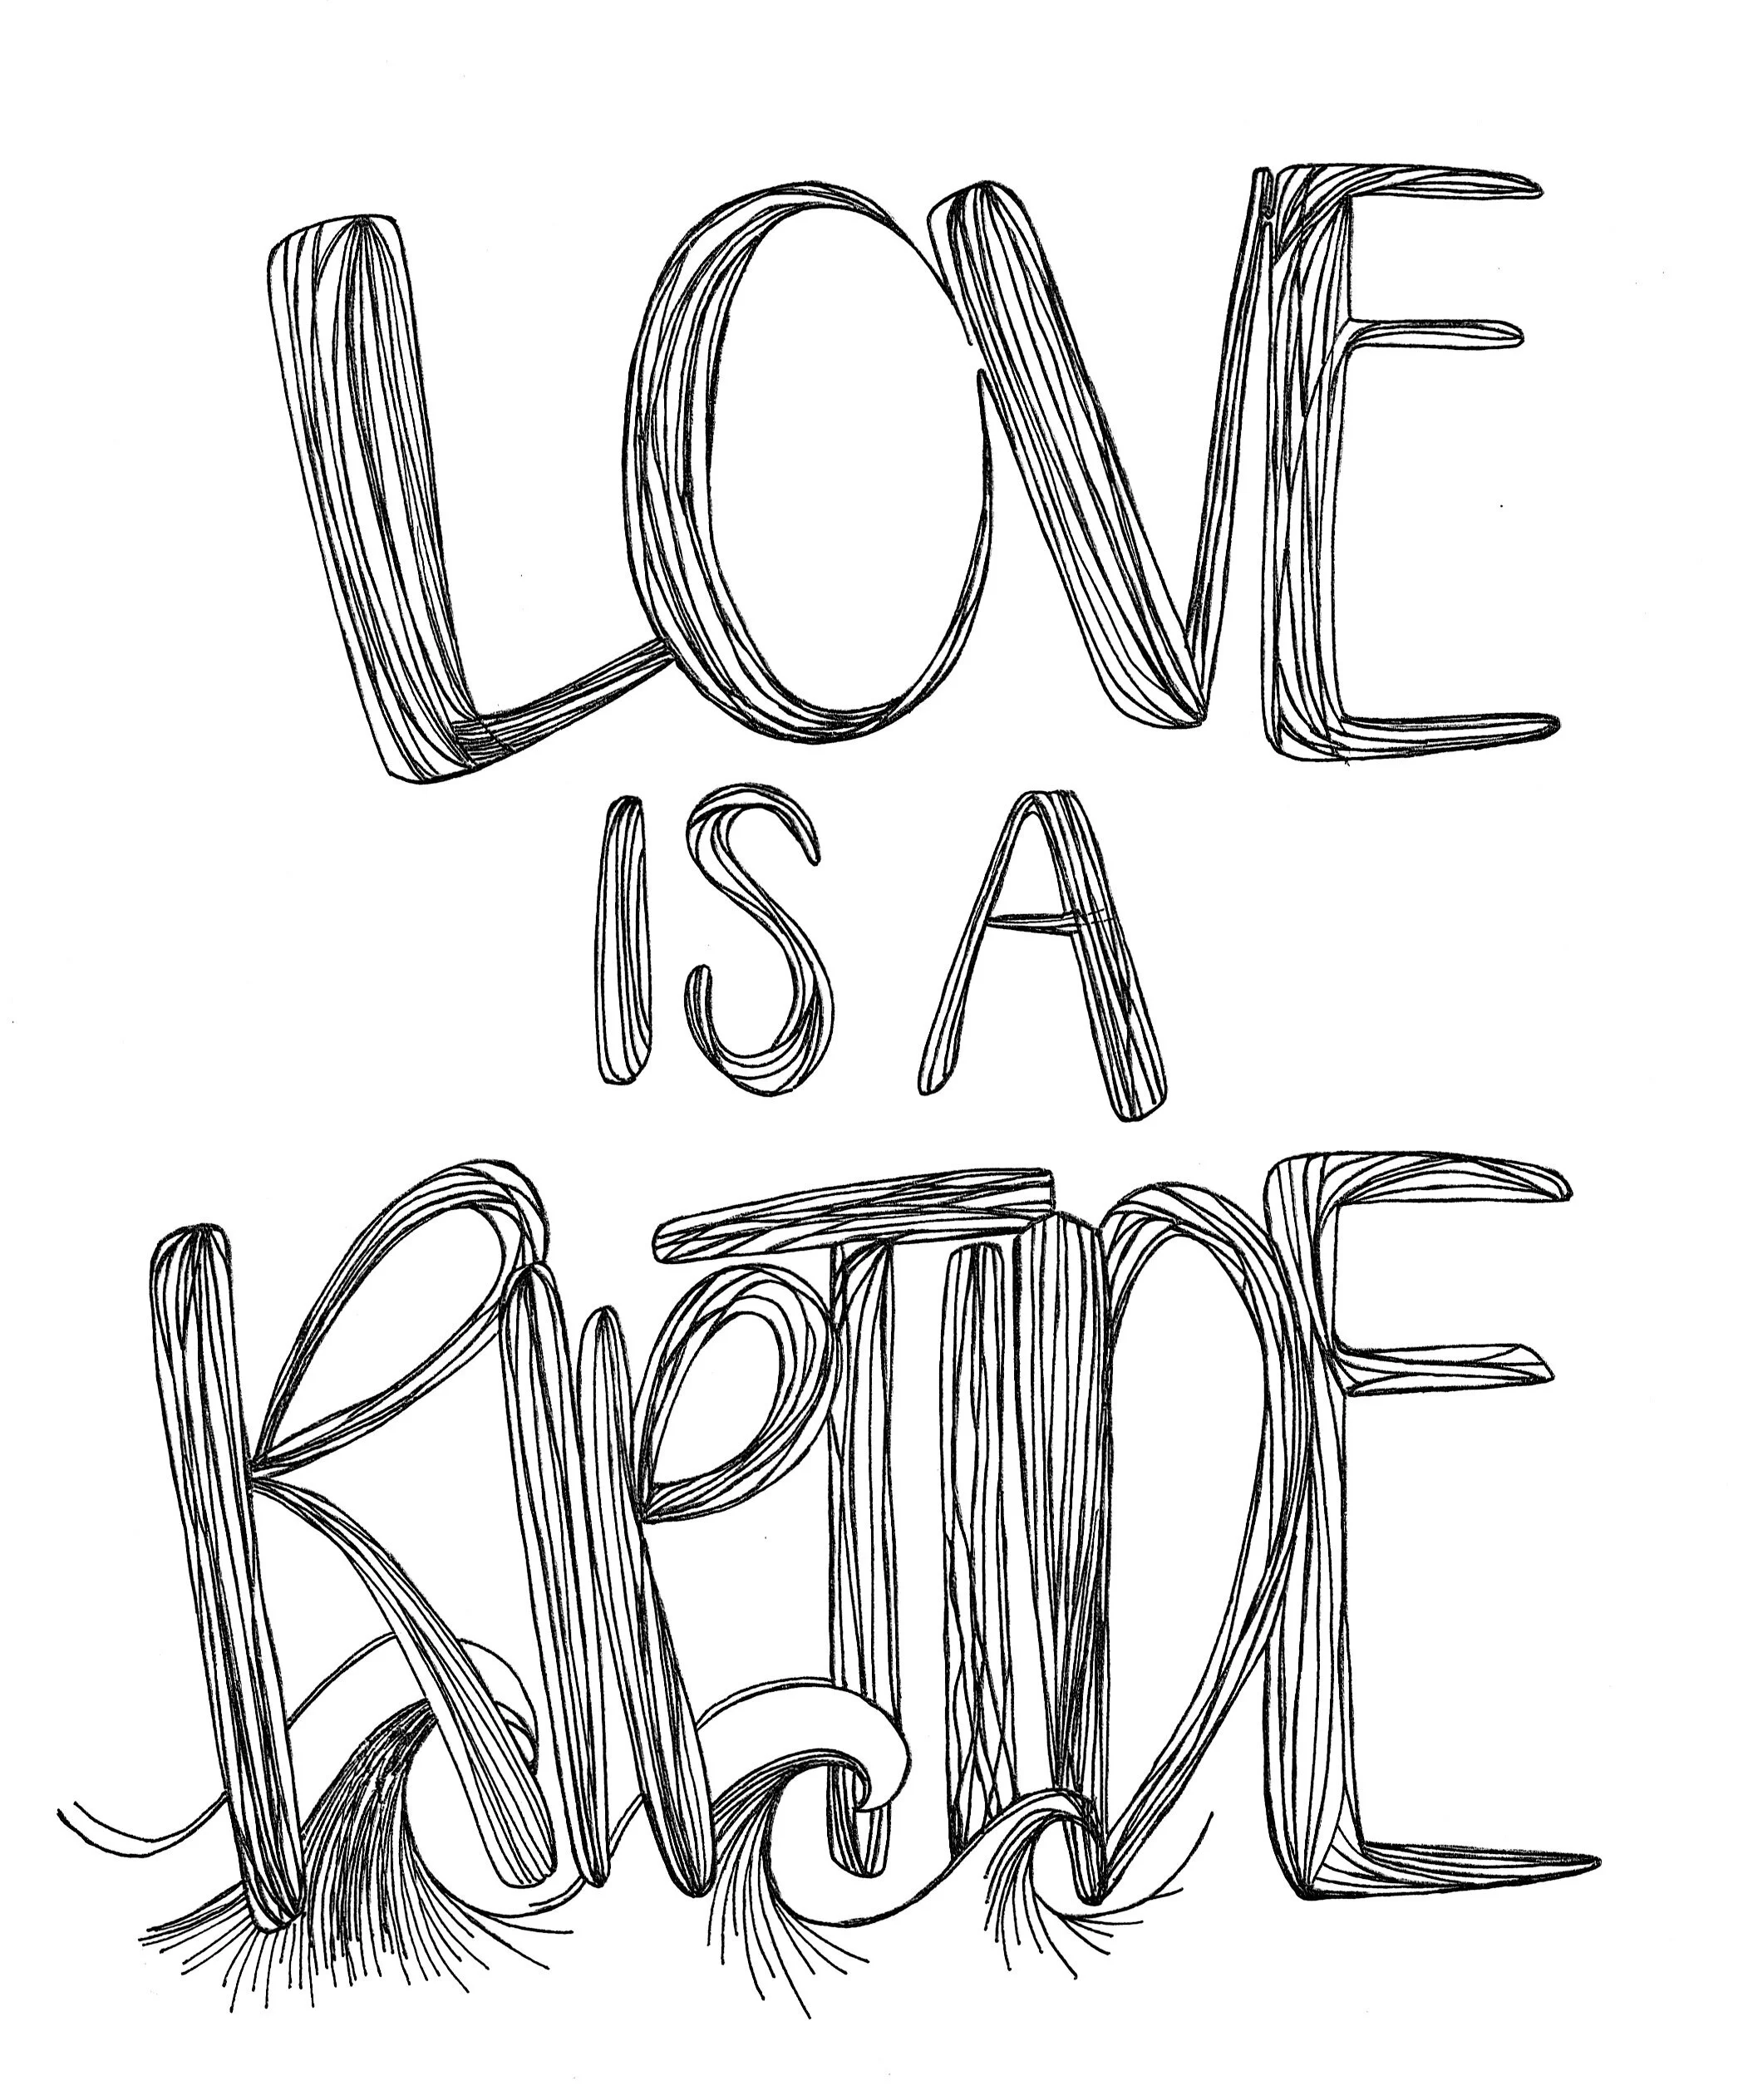 LOVE
IS A
RIPTIDE